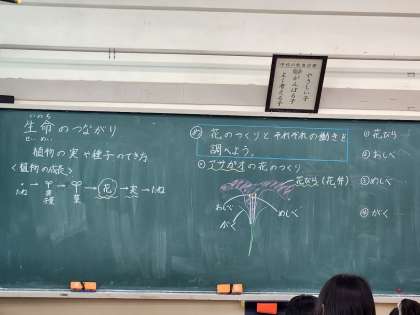 学校の教育目標
やさしい子
がんばる子
よく考える子
いのち
生命のつながり
せいめい
植物の実や種子のでき方
<植物の成長>
たね→芽→葉→花→実→たね
め 花のつくりとそれぞれの働きを
調べよう。
・アサガオの花のつくり
花びら(花弁)
おしべ
めしべ
がく
①花びら
②おしべ
③めしべ
④がく